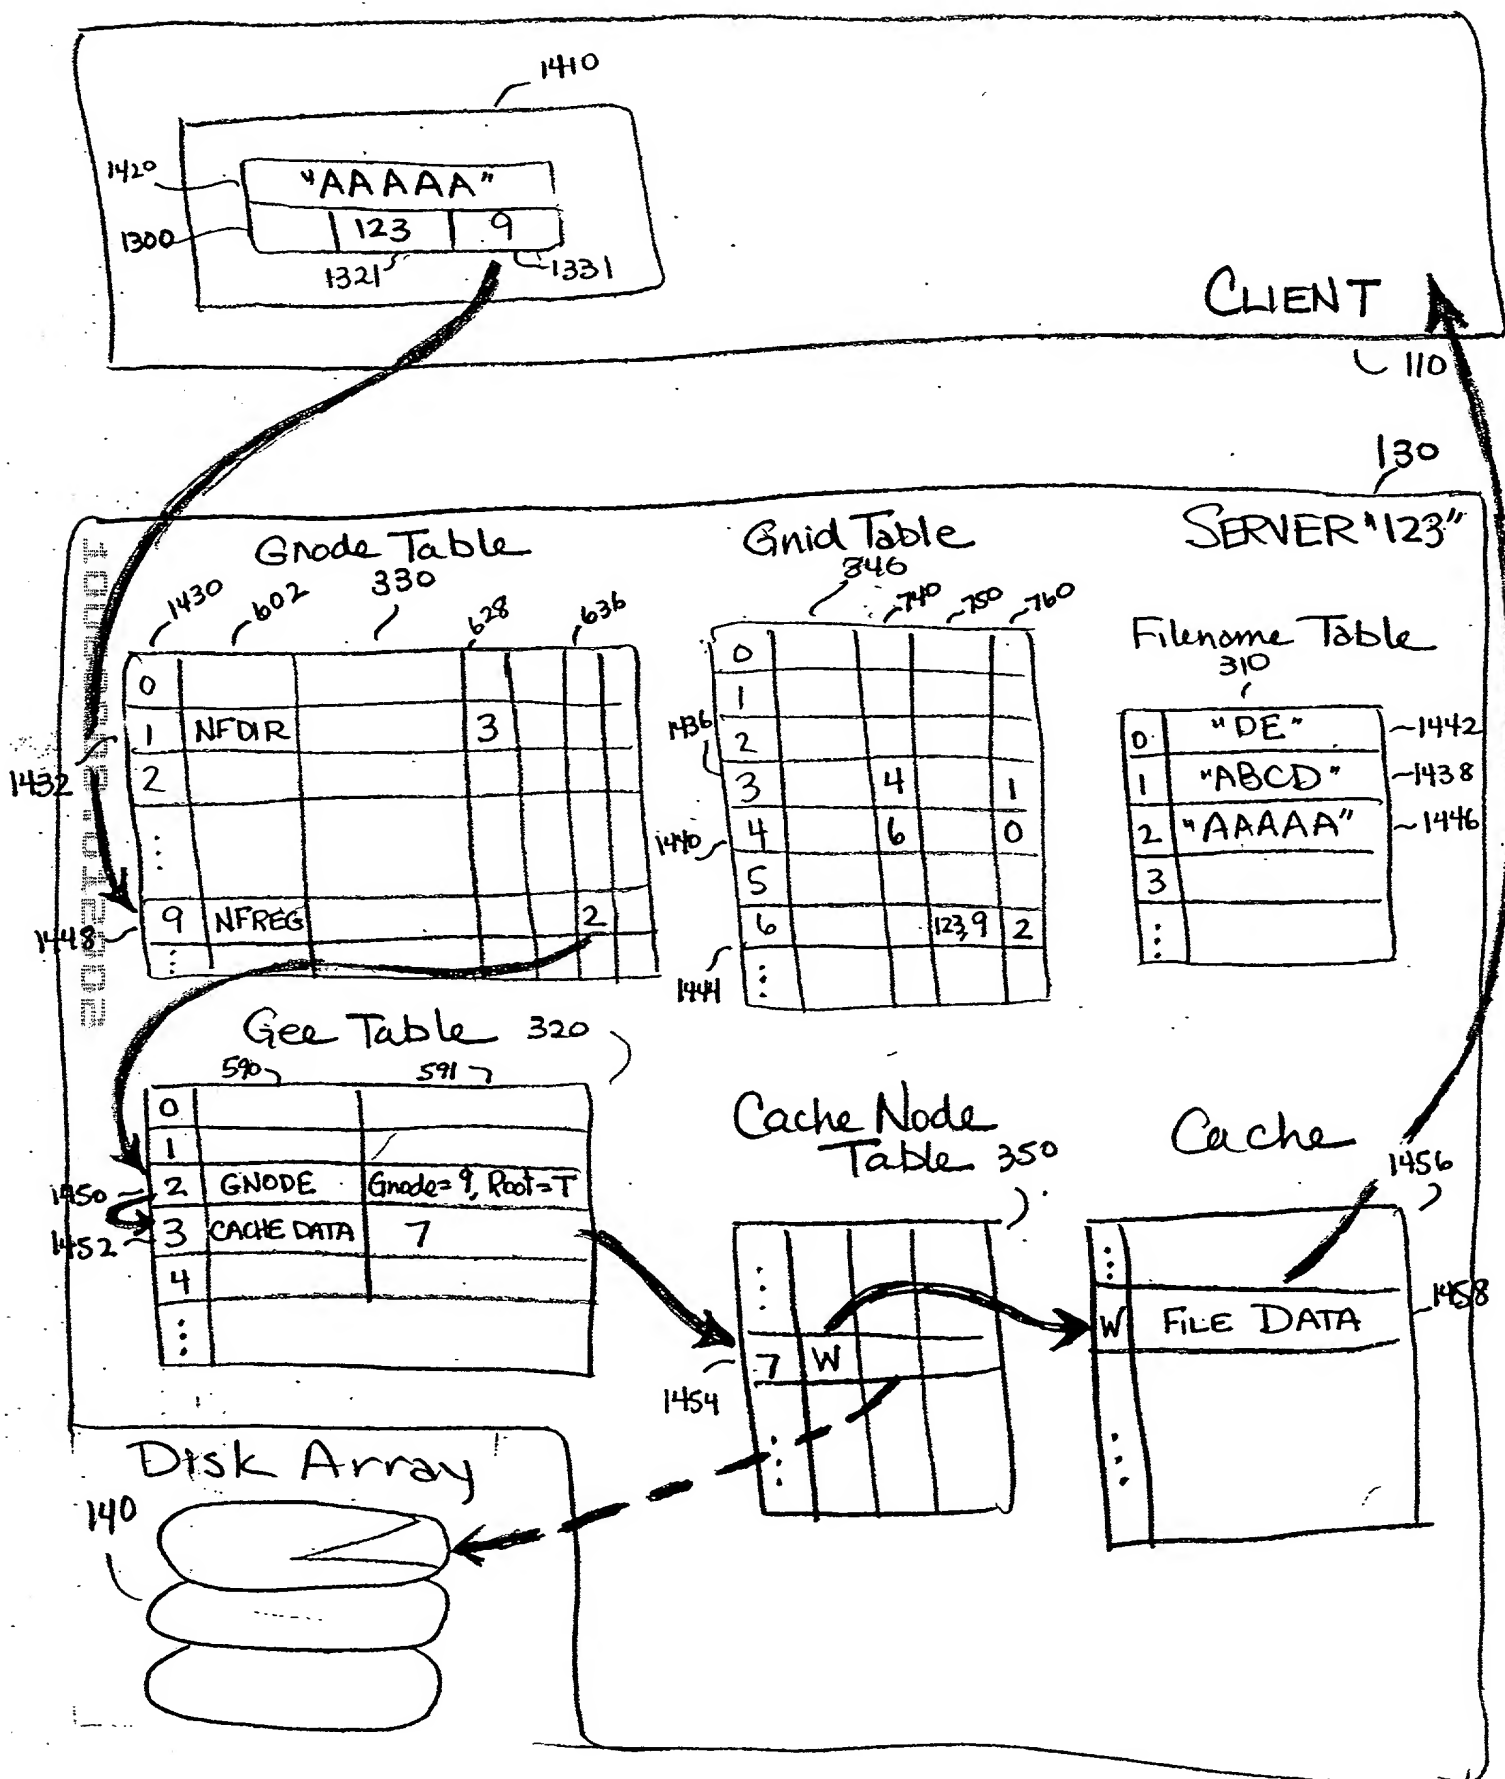 1410
1420
"AAAAA"
1300
123 9
1321 1331
CLIENT
110
130
SERVER "123"
Gnode Table
1430 602 330 628 636
0
1 NFDIR 3
1432
2
⋮
9 NFREG 2
1448
⋮
Gnid Table
346
740 750 760
0
1
1436
2
3 4 1
4 6 0
1440
5
6 123,9 2
1444
⋮
Filename Table
310
0 "DE" 1442
1 "ABCD" 1438
2 "AAAAA" 1446
3
⋮
Gee Table 320
590 591
0
1
1450 2 GNODE Gnode=9, Root=T
1452 3 CACHE DATA 7
4
⋮
Cache Node
Table 350
⋮
7 W
1454
⋮
Cache
1456
⋮
W FILE DATA 1458
⋮
Disk Array
140